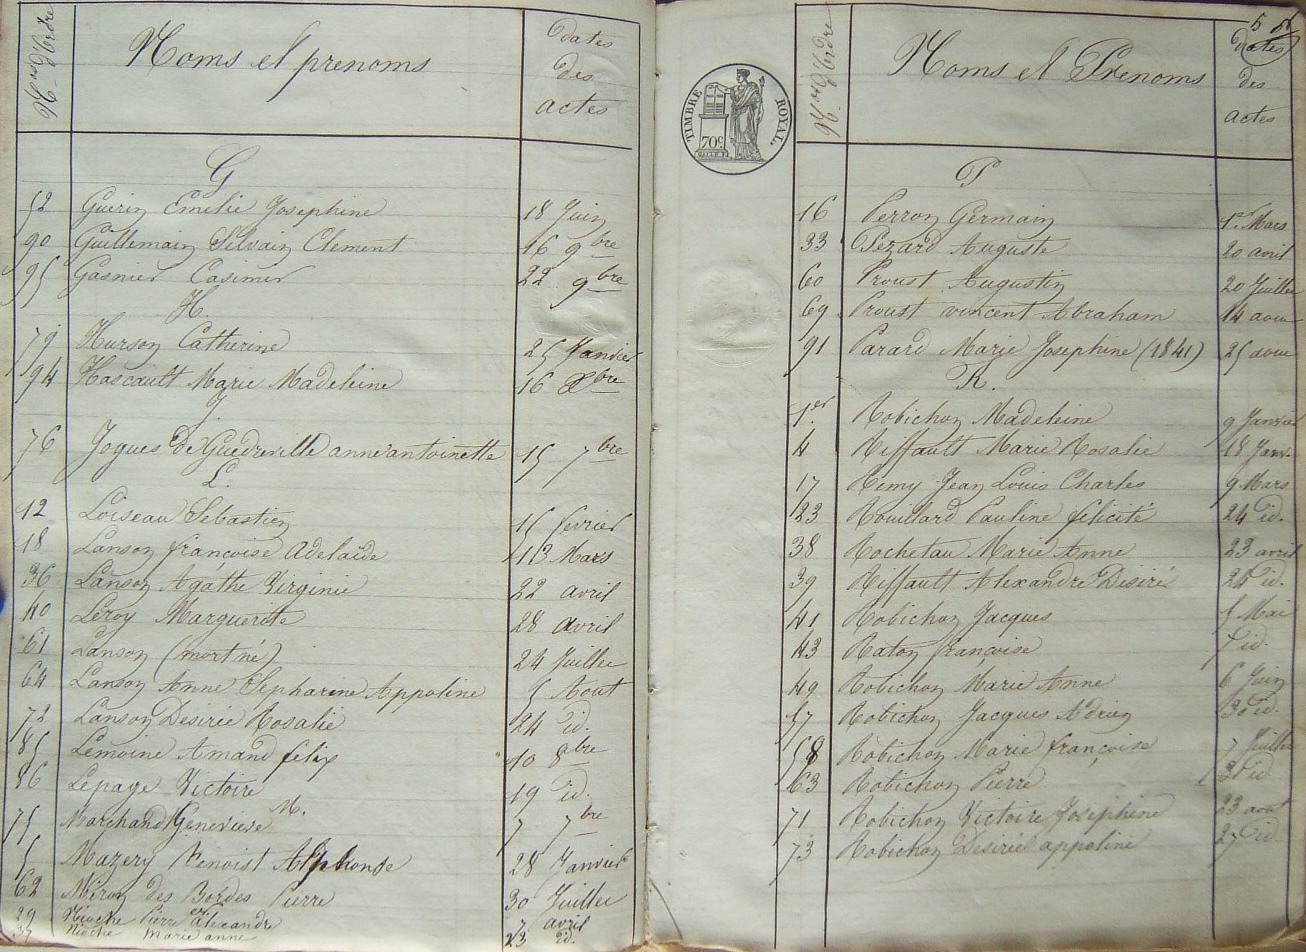 Nos d'Ordre Noms et prenoms dates des actes
G
52 Guerin Emelie Josephine 18 Juin
90 Guillemain Silvain Clement 16 9bre
95 Gasnier Casimir 22 9bre
H.
79 Hurson Catherine 25 Janvier
94 Hascault Marie Madeleine 16 Xbre
J
76 Jogues De Guedreville anne antoinette 15 7bre
L.
12 Loiseau Sebastien 15 fevrier
18 Lanson françoise Adelaïde 13 Mars
36 Lanson Agathe Virginie 22 avril
40 Leroy Marguerite 28 avril
61 Lanson (mort né) 24 Juillet
64 Lanson Anne Sepharine Appoline 5 Aout
72 Lanson Desirée Rosalie 24 id.
85 Lemoine Amand felix 10 8bre
86 Lepage Victoire 19 id.
M.
75 Marchand Genevieve 7 7bre
5 Mazery Benoist Alphonse 28 Janvier
62 Miron des Bordes Pierre 30 Juillet
29 Nioche Pierre Alexandre 7 avril
37 Nioche Marie anne 23 id.
TIMBRE ROYAL.
70c
5
Nos d'Ordre Noms et Prenoms dates des actes
P
16 Perron Germain 1er Mars
33 Pezard Auguste 20 avril
60 Proust Augustin 20 Juillet
69 Proust vincent Abraham 14 aout
91 Parard Marie Josephine (1841) 25 aout
R.
1er Robichon Madeleine 9 Janvier
4 Riffault Marie Rosalie 18 Janv.
17 Remy Jean Louis Charles 9 Mars
23 Rouillard Pauline félicité 24 id.
38 Rochetau Marie Anne 23 avril
39 Riffault Alexandre Désiré 24 id.
41 Robichon Jacques 5 Mai
43 Raton françoise 7 id.
49 Robichon Marie Anne 6 Juin
57 Robichon Jacques Adrien 30 id.
58 Robichon Marie françoise 7 Juillet
63 Robichon Pierre 31 id
71 Robichon Victoire Josephine 23 aout
73 Robichon Desirée appoline 27 id.